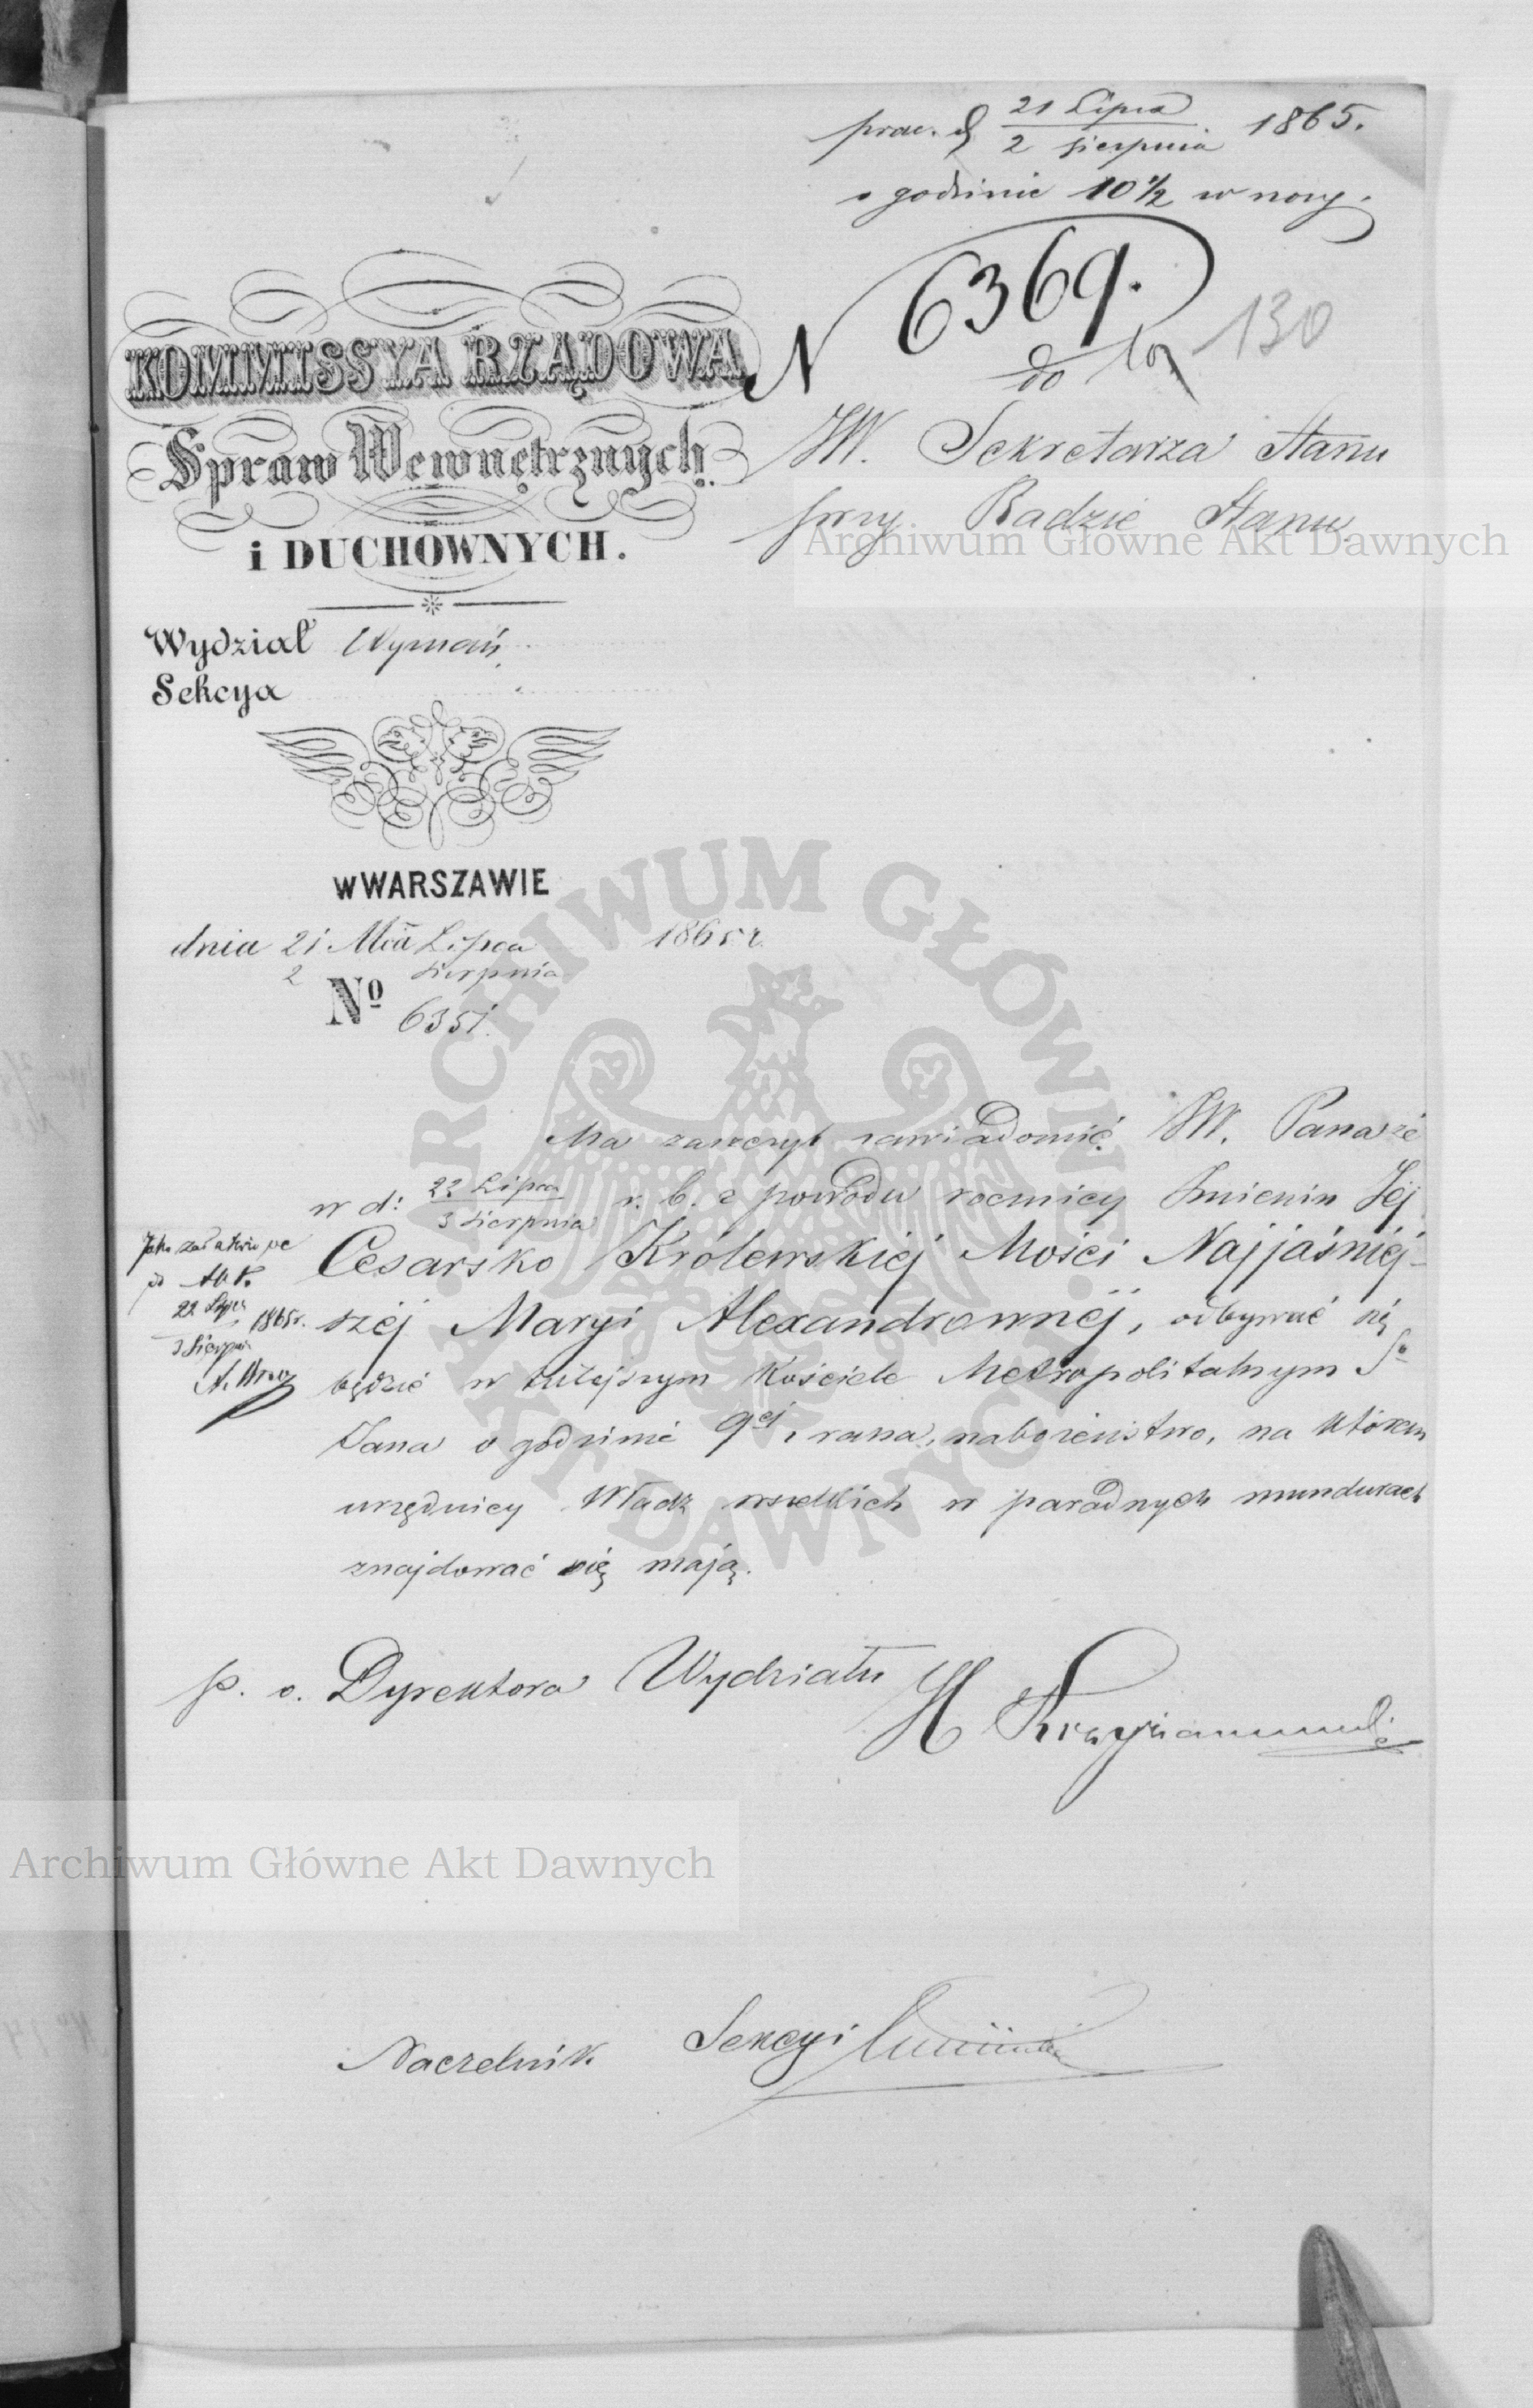 21 Lipca
2 Sierpnia 1865.
o godzinie 10½ w nocy.
N 6369.
do
130
KOMMISSYA RZĄDOWA
Spraw Wewnętrznych
i DUCHOWNYCH.
JW. Sekretarza Stanu
przy Radzie Stanu.
Wydział Wyznań
Sekcya
w WARSZAWIE
dnia 21 Mca Lipca 1865 r.
2 Sierpnia
No 6351.
Ma zaszczyt zawiadomić JW. Pana że
w d: 22 Lipca
3 Sierpnia r. b. z powodu rocznicy Imienin Jej
Cesarsko Królewskiej Mości Najjaśniej-
széj Maryi Alexandrownéj, odbywać się
będzie w tutejszym Kościele Metropolitalnym Sgo
Jana o godzinie 9ej z rana, nabożeństwo, na którem
urzędnicy Władz wszelkich w paradnych mundurach
znajdować się mają.
22 Lipca
3 Sierpnia 1865 r.
p. o. Dyrektora Wydziału
H
Naczelnik Sekcyi
Archiwum Główne Akt Dawnych
Archiwum Główne Akt Dawnych
ARCHIWUM GŁÓWNE
AKT DAWNYCH